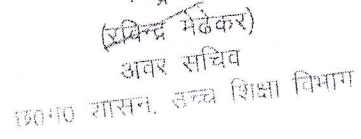 (रविन्द्र मेढेकर)
अवर सचिव
छ०ग० शासन, उच्च शिक्षा विभाग